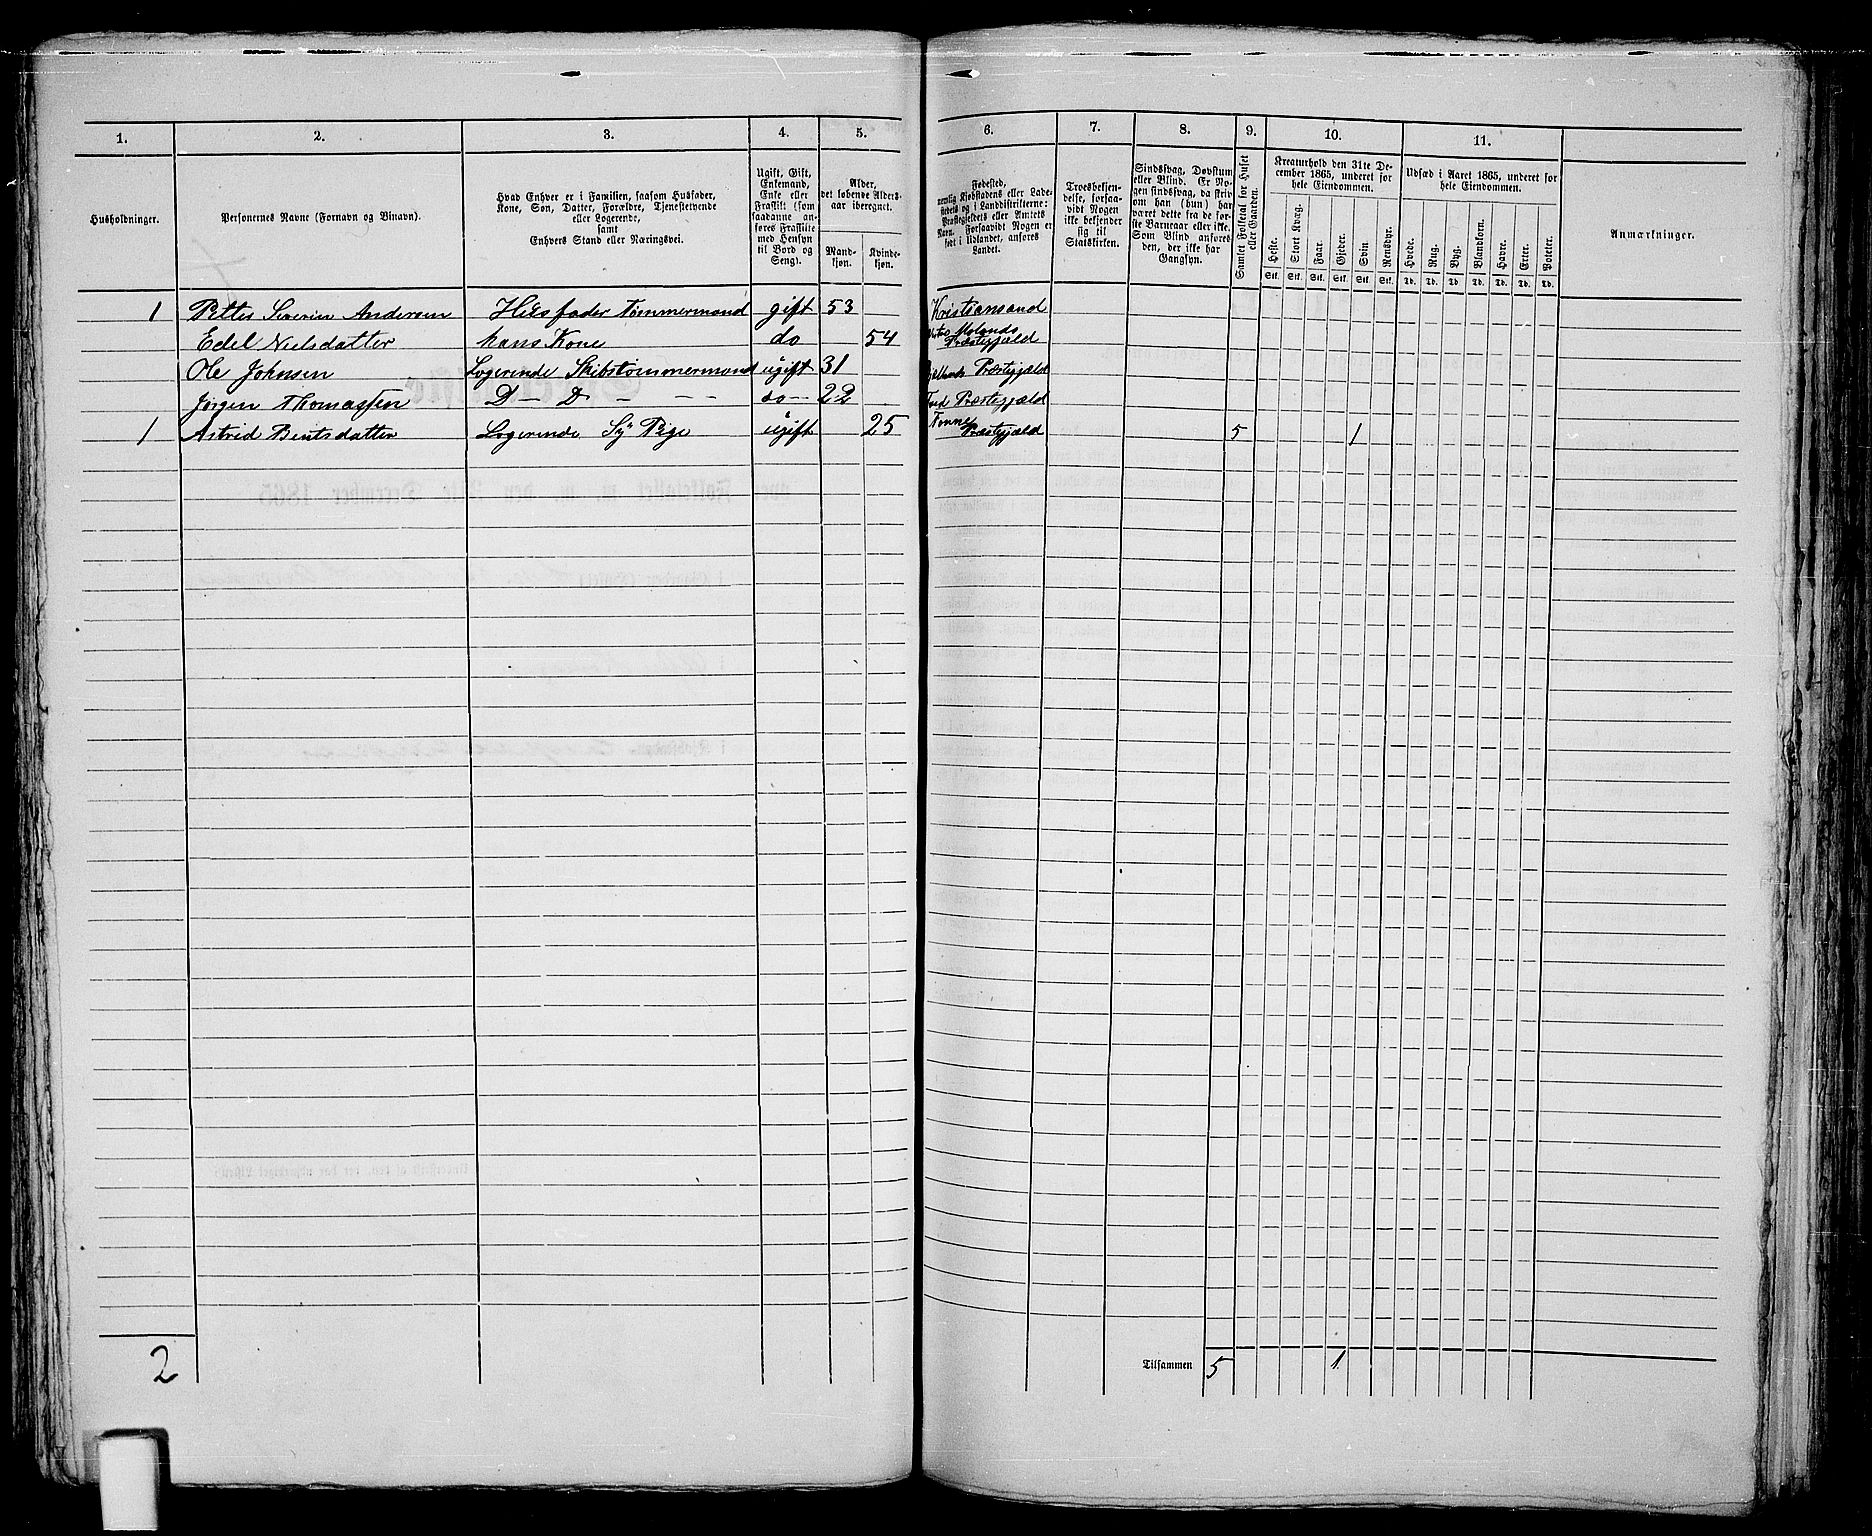 1. 2. 3. 4. 5. 6. 7. 8. 9. 10. 11.
Husholdninger.
Personernes Navne (Fornavn og Binavn).
Hvad Enhver er i Familien, saasom Husfader,
Kone, Søn, Datter, Forældre, Tjenestetyende
eller Logerende,
samt
Enhvers Stand eller Næringsvei.
Ugift, Gift,
Enkemand,
Enke eller
Fraskilt (som
saadanne an-
føres Fraskilte
med Hensyn
til Bord og
Seng).
Alder,
det løbende Alders-
aar iberegnet.
Mand-
kjøn.
Kvinde-
kjøn.
Fødested,
nemlig Kjøbstadens eller Lade-
stedets og i Landdistrikterne:
Præstegjeldets eller Amtets
Navn. Forsaavidt Nogen er
født i Udlandet, anføres
Landet.
Troesbekjen-
delse, forsaa-
vidt Nogen
ikke bekjender
sig til
Statskirken.
Sindssvag, Døvstum
eller Blind. Er No-
gen sindssvag, da skriv
om han (hun) har
været dette fra de før-
ste Barneaar eller ikke.
Som Blind anføres
den, der ikke har
Gangsyn.
Samlet Folketal for Huset
eller Gaarden.
Kreaturhold den 31te De-
cember 1865, underet for
hele Eiendommen.
Heste. Stort Kvæg. Faar. Gjeder. Svin Rensdyr.
Stk. Stk. Stk. Stk. Stk. Stk.
Udsæd i Aaret 1865, underet for
hele Eiendommen.
Hvede. Rug. Byg. Blandkorn. Havre. Erter. Poteter.
Td. Td. Td. Td. Td. Td. Td.
Anmærkninger.
1 Petter Severin Andersen Husfader Tømmermand gift 53 Kristiansand
Edel Nielsdatter hans Kone do 54 Molands Præstegjæld
Ole Johnsen Logerende Skibstømmermand ugift 31 Præstegjæld
Jørgen Thomassen D — D — — — do — 22 Præstegjæld
1 Astrid Bentsdatter Logerende Sy Pige ugift 25 Præstegjæld 5 1
2 Tilsammen 5 1